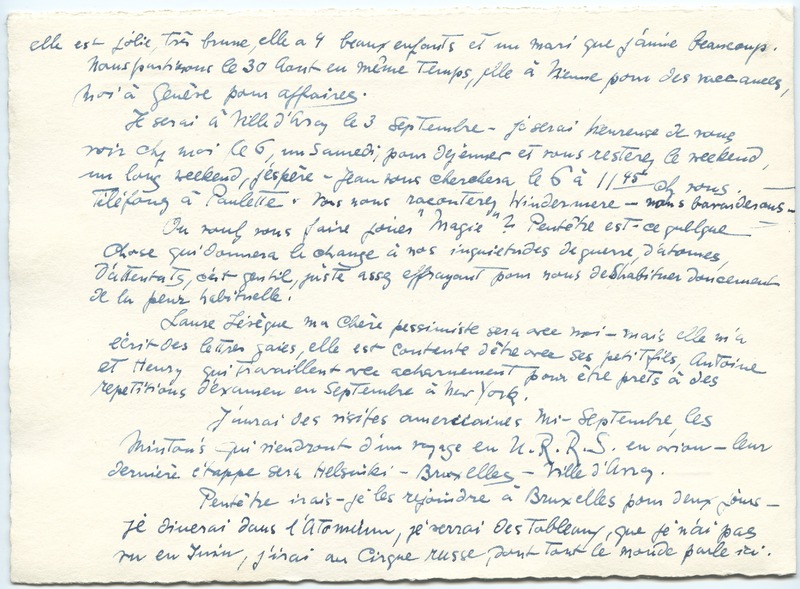 elle est jolie, très brune, elle a 4 beaux enfants et un mari que j'aime beaucoup.
Nous partirons le 30 Aout en même temps, elle à Vienne pour des vaccances,
moi à Genève pour affaires.
Je serai à Ville d'Avray le 3 Septembre – je serai heureuse de vous
voir chez moi le 6, un Samedi, pour dejeuner et vous resterez le weekend,
un long weekend, j'éspère – Jean vous cherchera le 6 à 11 45 chez vous.
Téléfonez à Paulette. Vous nous raconterez Windermere – nous bavarderons –
On veut vous faire jouer "Magie"? Peutêtre est-ce quelque
chose qui donnera le change à nos inquiétudes de guerre, d'atomes,
d'attentats, c'est gentil, juste assez effrayant pour nous deshabituer doucement
de la peur habituelle.
Laure Lévêque ma chère pessimiste sera avec moi – mais elle m'a
écrit des lettres gaies, elle est contente d'être avec ses petitsfils, Antoine
et Henry qui travaillent avec acharnement pour être prêts à des
repetitions d'examen en Septembre à New York.
J'aurai des visites americaines mi-Septembre, les
Minton's qui viendront d'un voyage en U.R.R.S. en avion – leur
dernière étappe sera Helsinki – Bruxelles – Ville d'Avray.
Peutêtre irais-je les rejoindre à Bruxelles pour deux jours –
je dinerai dans l'Atomium, je verrai des Tableaux, que je n'ai pas
vu en Juin, j'irai au Cirque russe dont tout le monde parle ici.